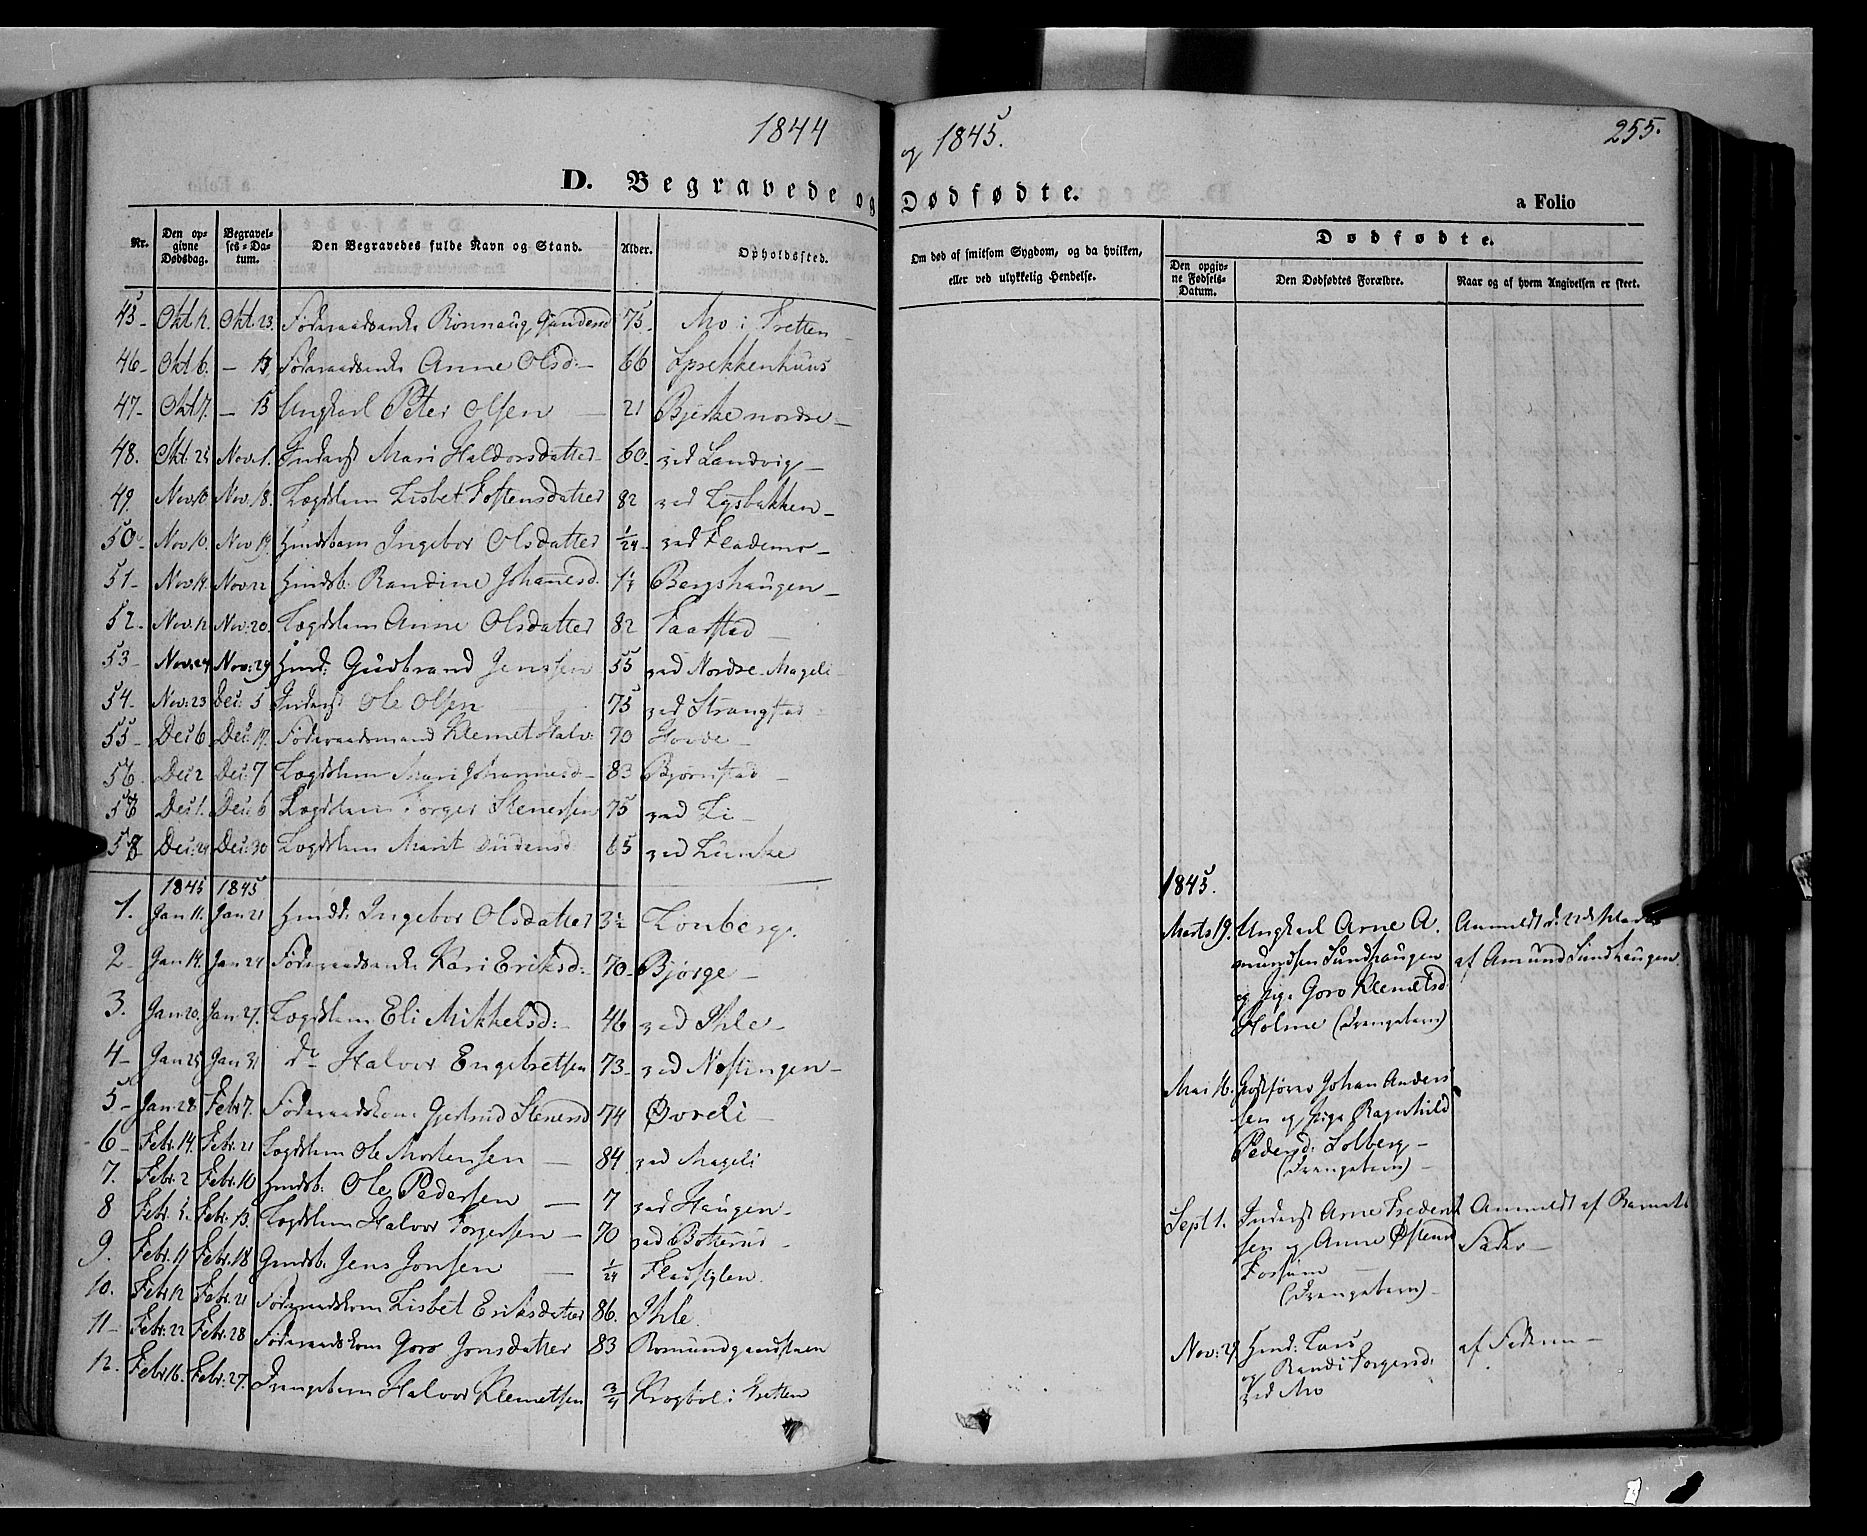 1844
D. Begravede og
Nr. Den opgivne Dødsdag. Begravelses-Datum. Den Begravedes fulde Navn og Stand. Alder. Opholdssted.
45- Okt. Okt. 23. Føderaadsenke Rønnaug 75. Mo i Tretten
46- Okt 6. Føderaadsenke Anne Olsd:- 66 Sprekkenhuus
47- Okt 7. - 15 Ungkarl Peter Olsen - 21 Bjerke nordre-
48. Okt 25 Nov. 1. Inderst Mari Haldorsdatter- 60. ved Landvig-
49. Nov. 10 Nov. 18. Lægdslem Lisbet Tostensdatter 82 ved Lysbakken-
50- Nov 10. Nov 19. Huusbarn Ingebor Olsdatter 1/24 ved Flademo-
51- Nov. 14. Nov 22 Huusb. Randine Johannesd. 1 1/4 Bergshaugen-
52- Nov. 12 Nov: 20. Lægdslem Anne Olsdatter 82 Taarstad-
53- Nov: 24 Nov: 29 Huusm: Gudbrand Jenssen 55 ved Nordre Mageli-
54- Nov: 23 Dec: 5 Inderst Ole Olsen 75 ved Strangstad
55- Dec 6 Dec. 17. Føderaadsmand Klemet Halv: 70 Hovde-
56. Dec 2 Dec: 7 Lægdslem Mari Johannesd- 83 Bjørnstad-
Dec 1. Dec: 6 Lægdslem Torger Stenersen 75 ved Li-
58 Dec: 21 Dec: 30 Lægdslem Marit 65 ved Lunke
1845 1845
1. Jan 11. Jan 21 Ingebor Olsdatter 3 1/2 Lonberg.
2- Jan 14. Jan 24 Føderaadsenke Kari Eriksd:- 70- Bjørge-
3. Jan 20 Jan 27. Lægdslem Eli Mikkelsd:- 46 ved Ihle-
4- Jan 25 Jan 31 do Halvor Engebretsen 73- ved Nestingen-
5- Jan 28 Febr 7. Føderaadskone Gjertrud Stenersd 74 Øvreli-
6- Febr. 14. Febr. 21 Lægdslem Ole Mortensen - 84 ved Mageli
7. Febr. 2 Febr. 10 Huusb. Ole Pedersen - 7 ved Haugen-
8 Febr. 5. Febr. 13. Lægdslem Halvor Torgersen - 70 ved Botterud-
9. Febr. 11 Febr. 18 Gaardb. Jens Jonsen - 1/24 Fladstylen.
10. Febr. 12 Febr. 21 Føderaadskone Lisbet Eriksdatter 86. Ihle.
11- Febr. 22 Febr. 28 Føderaadskone Goro Jonsdatter 83 Romundgaardstuen
12. Febr 16. Febr. 27. Drengebarn Halvor Klemetsen 3/4 Krogbøl i Tretten
og 1845.
255.
Dødfødte.
a Folio
Om død af smitsom Sygdom, og da hvilken,
eller ved ulykkelig Hendelse.
Dødfødte.
Den opgivne Fødsels-Datum. Den Dødfødtes Forældre. Naar og af hvem Angivelsen er skeet.
1845.
Marts 19. Ungkarl Arne A. Anmeldt d: 22de Marts
mundsen Sundhaugen af Amund Sundhaugen.
og Pige Goro Klemetsd
Holme (Drengebarn)
Mai 16. Johan Anders
sen og Pige Ragnhild
Pedersd: Solberg-
(Drengebarn)-
Sept 1. Inderst Arne Frederik Anmeldt af Barnets
sen og Anne Østensd Fader-
Fossum-
(Drengebarn)-
Nov: 27 Huusm: Lars af Faderen-
og Randi Torgersd:
ved Mo